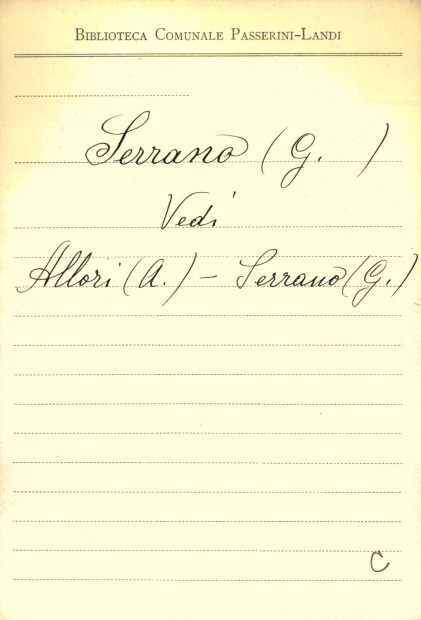 BIBLIOTECA COMUNALE PASSERINI-LANDI
Serrano (G. )
Vedi
Allori (A.) - Serrano (G.)
C